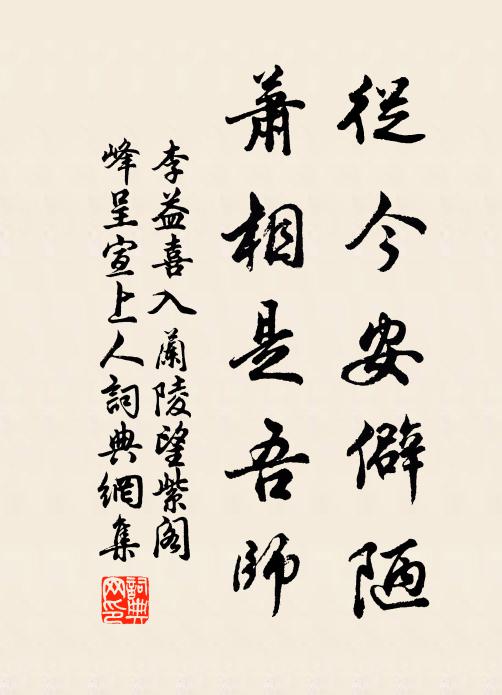 從今安僻陋
蕭相是吾師
李益喜入蘭陵望紫阁
峰呈宣上人詞典網集
詞典
网印